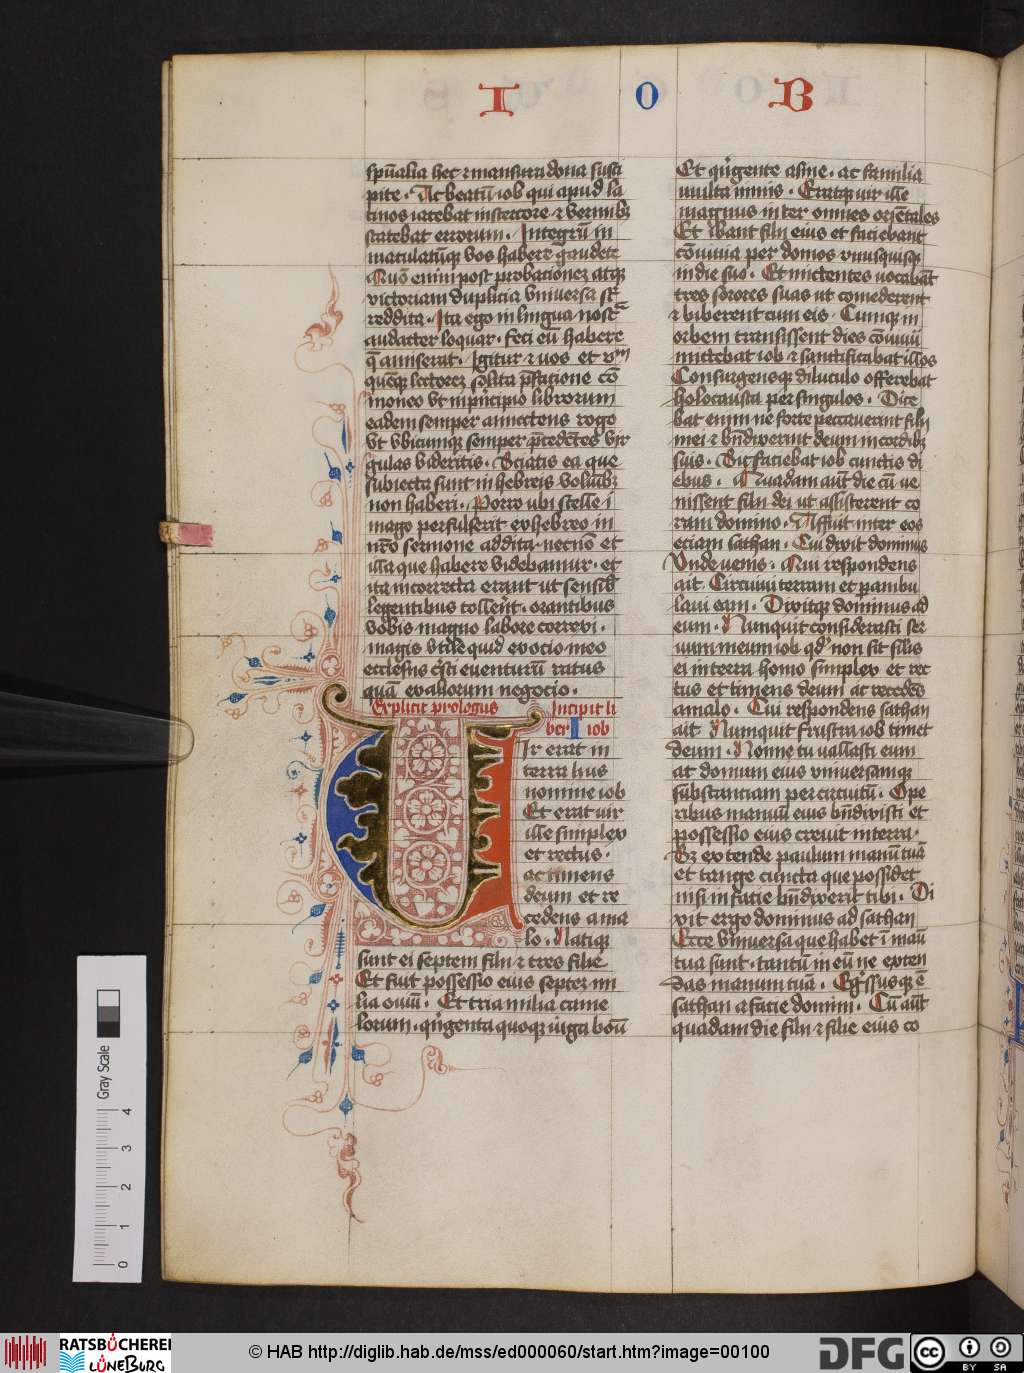 I O B
sp̄ualia hec ⁊ mansura dona susci
pite. Ac beatū iob qui apud la
tinos iacebat in stercore ⁊ vermibꝫ
scatebat errorum. Integrū in
maculatūqꝫ vos habere gaudete
Quō enim post probacionez atqꝫ
victoriam duplicia vniuersa st̄
reddita. Ita ego in lingua nost̄ra
audacter loquar. feci eū habere
q̄ amiserat. Igitur ⁊ vos et vnū
quēqꝫ lectorez solita p̄fatione cō
moneo vt in p̄ncipio librorum
eadem semper annectens rogo
vt vbicumqꝫ semper p̄cedētes vir
gulas videritis. Sciatis ea que
subiecta sunt in hebreis volūībꝫ
non haberi. Porro ubi stelle i
mago perfulserit ex hebreo in
nr̄o sermone addita. necnō et
illa que habere videbamur. et
ita incorrecta erant ut sensū
legentibus tollerēt. orantibus
vobis magno labore correxi.
magis vtile quid ex ocio meo
ecclesiis xp̄i euenturū ratus
quā ex aliorum negocio.
Explicit prologus Incipit li
ber I iob
Vir erat in
terra hus
nomine iob
Et erat vir
ille simplex
et rectus.
ac timens
deum et re
cedens a ma
lo. Natiqꝫ
sunt ei septem filii ⁊ tres filie
Et fuit possessio eius septez mi
lia ouiū. Et tria milia came
lorum. qn̄genta quoqꝫ iuga boū
Et qn̄gente asine. ac familia
multa nimis. Eratqꝫ vir ille
magnus inter omnes oriētales
Et ibant filii eius et faciebant
cōuiuia per domos vnusquisqꝫ
in die suo. Et mictentes vocabāt
tres sorores suas ut comederent
⁊ biberent cum eis. Cumqꝫ in
orbem transissent dies cōuiuii
mictebat iob ⁊ sanctificabat illos
Consurgensqꝫ diluculo offerebat
holocausta per singulos. Dice
bat enim ne forte peccauerint filii
mei ⁊ bn̄dixerint deum in cordibꝫ
suis. Sic faciebat iob cunctis di
ebus. Quadam aūt die cū ve
nissent filii dei ut assisterent co
ram domino. Affuit inter eos
eciam sathan. Cui dixit dominus
Vnde venis. Qui respondens
ait. Circuiui terram et pambu
laui eam. Dixitqꝫ dominus ad
eum. Nunquit considerasti ser
uum meum iob qd̓ non sit silis
ei in terra homo simplex et rec
tus et timens deum ac recedēs
a malo. Cui respondens sathan
ait. Nunquit frustra iob timet
deum. Nonne tu vallasti eum
ac domum eius vniuersamqꝫ
substantiam per circuitū. Ope
ribus manuū eius bn̄dixisti et
possessio eius creuit in terra.
Sꝫ extende paulum manū tuā
et tange cuncta que possidet
nisi in facie bn̄dixerit tibi. Di
xit ergo dominus ad sathan
Ecce vniuersa que habet ī manū
tua sunt. tantū in eū ne exten
das manum tuā. Egr̄ssusqꝫ ē
sathan a facie domini. Cū aūt
quadam die filii ⁊ filie eius co
Gray Scale
4
3
2
1
0
RATSBÜCHEREI
LÜNEBURG
© HAB http://diglib.hab.de/mss/ed000060/start.htm?image=00100
DFG
cc BY SA